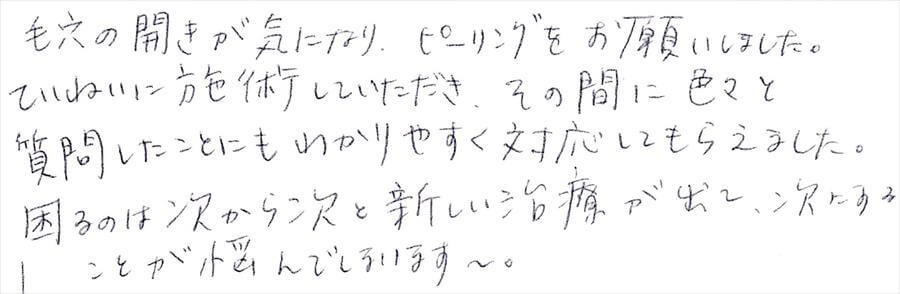 毛穴の開きが気になり、ピーリングをお願いしました。
ていねいに施術していただき、その間に色々と
質問したことにもわかりやすく対応してもらえました。
困るのは次から次と新しい治療が出て、次にする
ことが悩んでしまいます～。